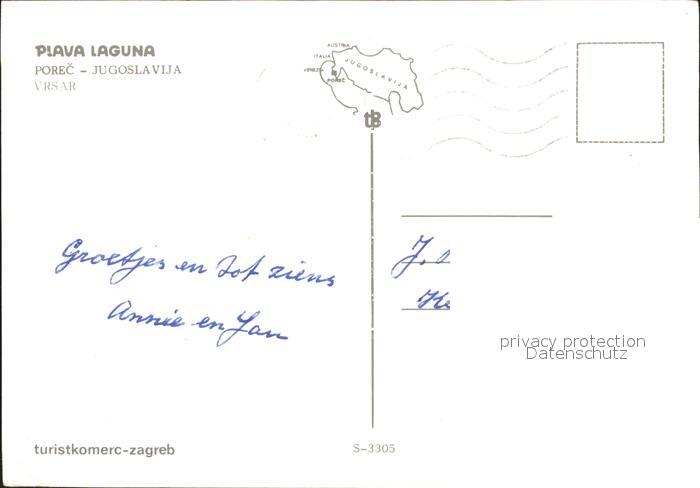 PLAVA LAGUNA
POREČ – JUGOSLAVIJA
VRSAR
AUSTRIA
ITALIA
VENEZIA
JUGOSLAVIJA
POREČ
tB
Groetjes en tot ziens
Annie en Jan
J.
Ke
privacy protection
Datenschutz
turistkomerc-zagreb
S-3305